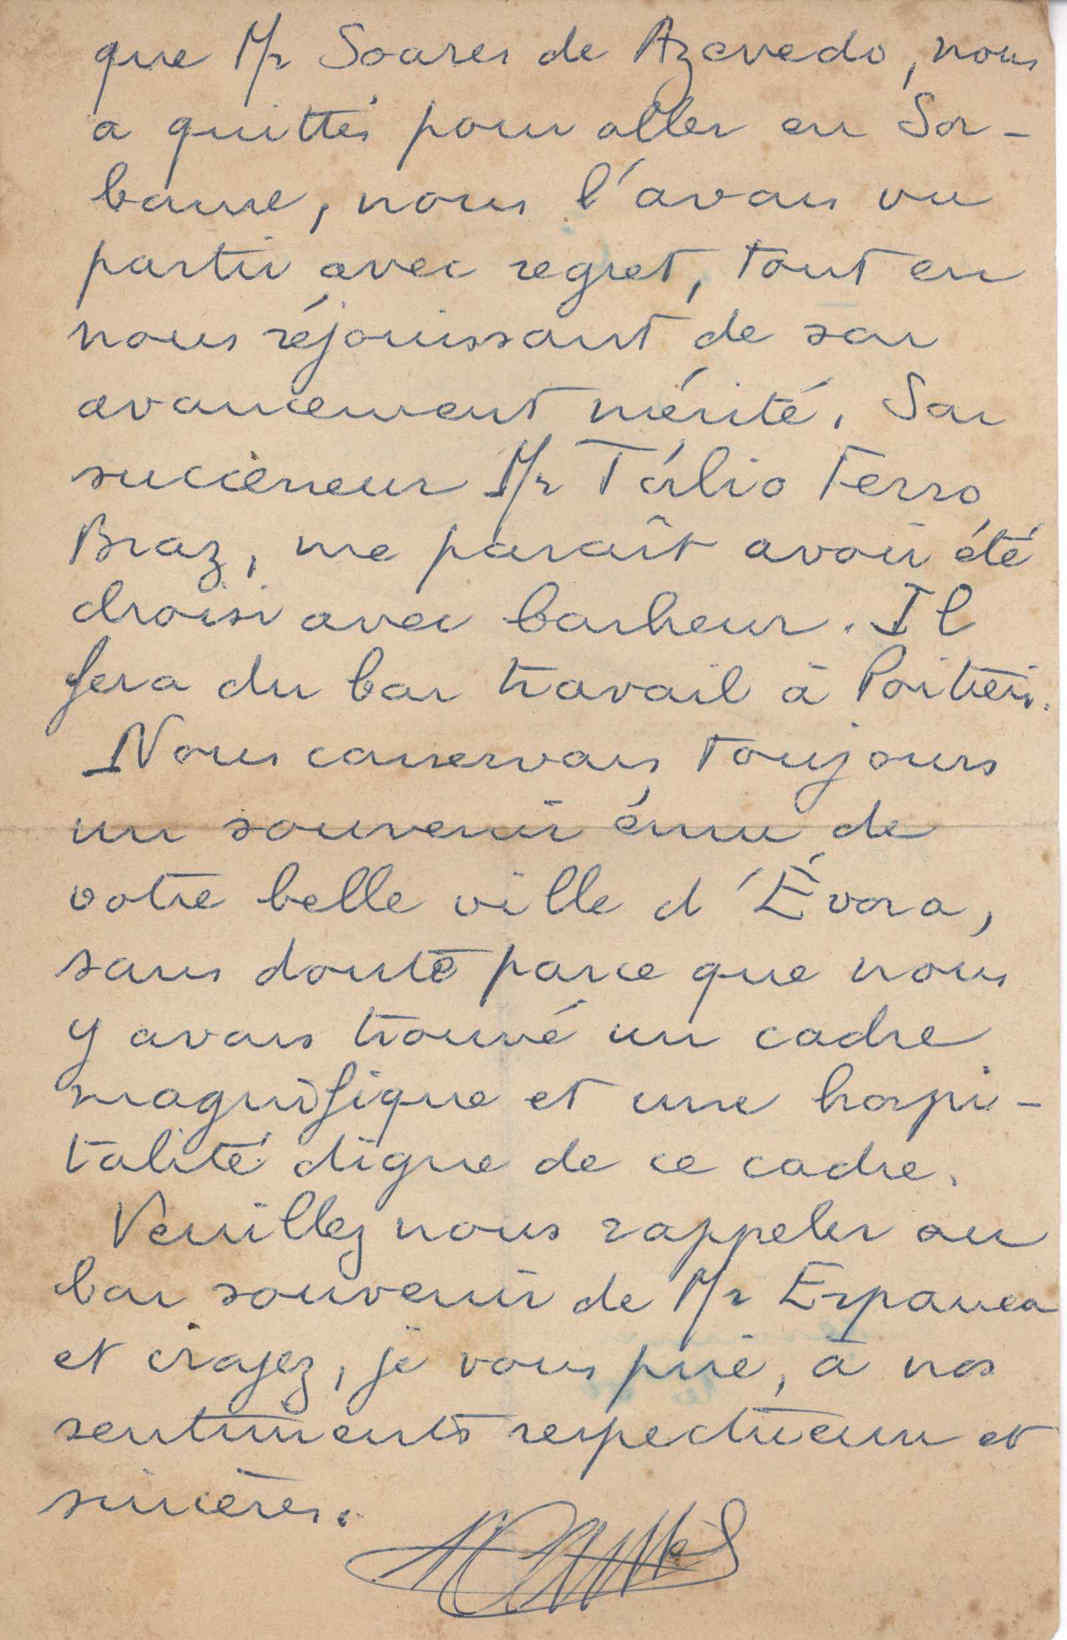 que Mr Soares de Azevedo, nous
a quittés pour aller en Sor-
bonne, nous l'avons vu
partir avec regret, tout en
nous réjouissant de son
avancement mérité. Son
successeur Mr Túlio Ferro
Braz, me paraît avoir été
choisi avec bonheur. Il
fera du bon travail à Poitiers.
Nous conservons toujours
un souvenir ému de
votre belle ville d'Évora,
sans doute parce que nous
y avons trouvé un cadre
magnifique et une hospi-
talité digne de ce cadre.
Veuillez nous rappeler au
bon souvenir de Mr Espanca
et croyez, je vous prie, à nos
sentiments respectueux et
sincères.